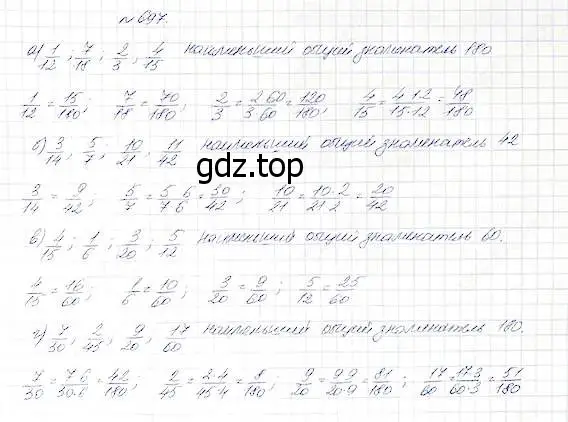 №697.
а) 1/12; 7/18; 2/3; 4/15 наименьший общий знаменатель 180
1/12 = 15/180; 7/18 = 70/180; 2/3 = 2·60/3·60 = 120/180; 4/15 = 4·12/15·12 = 48/180
б) 3/14; 5/7; 10/21; 11/42 наименьший общий знаменатель 42
gdz.top
3/14 = 9/42; 5/7 = 5·6/7·6 = 30/42; 10/21 = 10·2/21·2 = 20/42
в) 4/15; 1/6; 3/20; 5/12 наименьший общий знаменатель 60.
4/15 = 16/60; 1/6 = 10/60; 3/20 = 9/60; 5/12 = 25/60
г) 7/30; 2/45; 9/20; 17/60 наименьший общий знаменатель 180.
7/30 = 7·6/30·6 = 42/180; 2/45 = 2·4/45·4 = 8/180; 9/20 = 9·9/20·9 = 81/180; 17/60 = 17·3/60·3 = 51/180